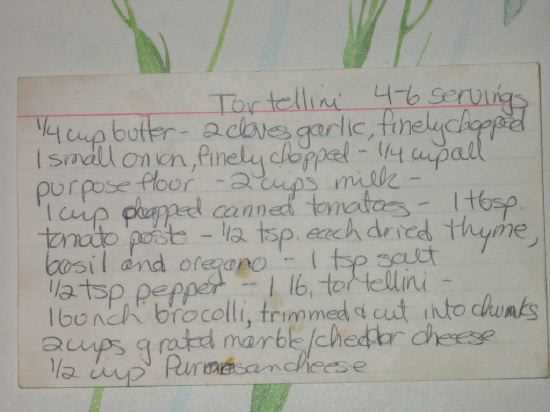 Tortellini 4-6 servings
1/4 cup butter - 2 cloves garlic, finely chopped
1 small onion, finely chopped - 1/4 cup all
purpose floor - 2 cups milk -
1 cup chopped canned tomatoes - 1 tbsp.
tomato paste - 1/2 tsp. each dried thyme,
basil and oregano - 1 tsp salt
1/2 tsp pepper - 1 lb. tortellini -
1 bunch brocolli, trimmed & cut into chunks
2 cups grated marble/cheddar cheese
1/2 cup Parmesan cheese